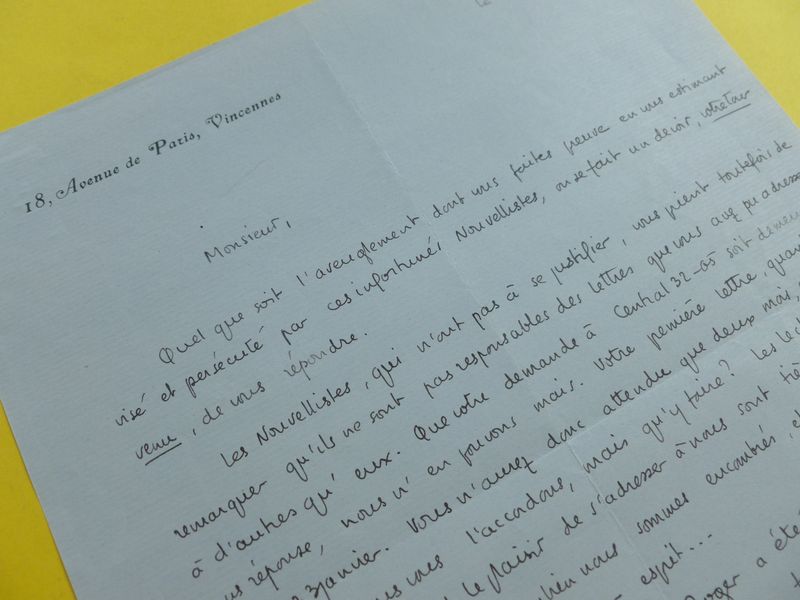 18, Avenue de Paris, Vincennes
le
Monsieur,
Quel que soit l'aveuglement dont vous faites preuve en vous estimant
visé et persécuté par ces infortunés Nouvellistes, on se fait un devoir, votre tour
venu, de vous répondre.
Les Nouvellistes, qui n'ont pas à se justifier, vous prient toutefois de
remarquer qu'ils ne sont pas responsables des lettres que vous avez pu adresser
à d'autres qu'eux. Que votre demande à Central 32-05 soit demeu
réponse, nous n'en pouvons mais. Votre première lettre, quan
3 janvier. Vous n'aurez donc attendu que deux mois,
vous l'accordons, mais qu'y faire? Les le
le plaisir de s'adresser à nous sont
bien nous sommes encombrés, et
esprit...
Roger a été